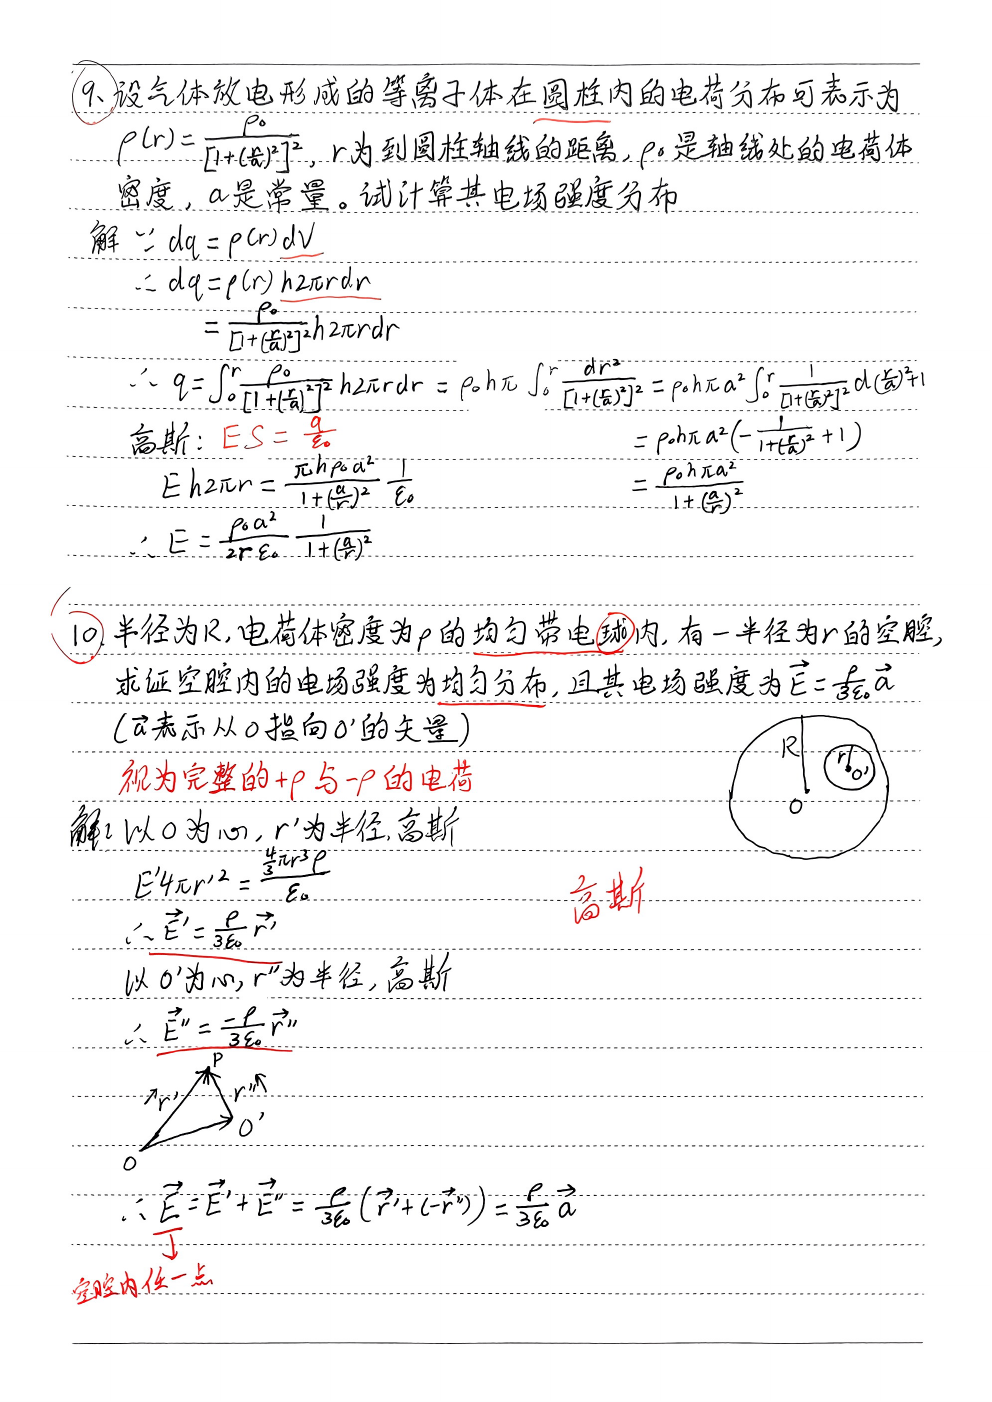 9、设气体放电形成的等离子体在圆柱内的电荷分布可表示为
ρ(r)=ρ₀/[1+(r/a)²]², r为到圆柱轴线的距离, ρ₀是轴线处的电荷体
密度, a是常量。试计算其电场强度分布
解 ∵ dq=ρ(r)dV
∴ dq=ρ(r)h2πrdr
=ρ₀/[1+(r/a)²]² h2πrdr
∴ q=∫₀^r ρ₀/[1+(r/a)²]² h2πrdr = ρ₀hπ ∫₀^r dr²/[1+(r/a)²]² = ρ₀hπa² ∫₀^r 1/[1+(r/a)²]² d(r/a)²+1
=ρ₀hπa²(-1/(1+(r/a)²)+1)
=ρ₀hπa²/(1+(a/r)²)
高斯: ES=q/ε₀
Eh2πr=πhρ₀a²/(1+(a/r)²) 1/ε₀
∴ E=ρ₀a²/2rε₀ 1/(1+(a/r)²)
10. 半径为R, 电荷体密度为ρ的均匀带电球内, 有一半径为r的空腔,
求证空腔内的电场强度为均匀分布, 且其电场强度为E⃗=ρ/3ε₀ a⃗
(a⃗表示从O指向O'的矢量)
视为完整的+ρ与-ρ的电荷
R
r
O'
O
解: 以O为心, r'为半径, 高斯
E'4πr'²=4/3πr³ρ/ε₀
高斯
∴ E⃗'=ρ/3ε₀ r⃗'
以O'为心, r''为半径, 高斯
∴ E⃗''=-ρ/3ε₀ r⃗''
P
r'
r''
O'
O
∴ E⃗=E⃗'+E⃗''=ρ/3ε₀(r⃗'+(-r⃗''))=ρ/3ε₀ a⃗
空腔内任一点